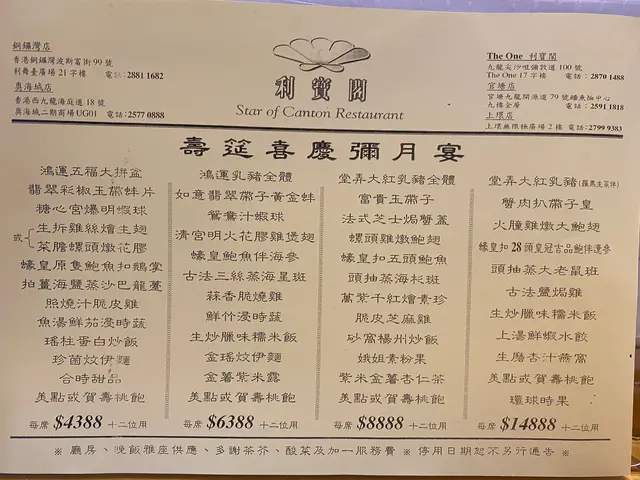 銅鑼灣店
香港銅鑼灣波斯富街99號
利舞臺廣場21字樓 電話:2881 1682
奧海城店
香港西九龍海庭道18號
奧海城二期商場UG01 電話:2577 0888
利寶閣
Star of Canton Restaurant
The One 利寶閣
九龍尖沙咀彌敦道100號
The One 17字樓 電話:2870 1488
官塘店
官塘九龍開源道79號鱷魚恤中心
九樓全層 電話:2591 1818
上環店
上環無限極廣場2樓 電話:2799 9383
壽筵喜慶彌月宴
鴻運五福大拼盆
翡翠彩椒玉帶蚌片
糖心宮爆明蝦球
或
生拆雞絲燴生翅
菜膽螺頭燉花膠
蠔皇原隻鮑魚扣鵝掌
拍薑海鹽蒸沙巴龍躉
照燒汁脆皮雞
魚湯鮮茄浸時蔬
瑤柱蛋白炒飯
珍菌炆伊麵
合時甜品
美點或賀壽桃飽
每席 $4388 十二位用
鴻運乳豬全體
如意翡翠帶子黃金蚌
鴛鴦汁蝦球
清宮明火花膠雞煲翅
蠔皇鮑魚伴海參
古法三絲蒸海星斑
蒜香脆燒雞
鮮竹浸時蔬
生炒臘味糯米飯
金瑤炆伊麵
金薯紫米露
美點或賀壽桃飽
每席 $6388 十二位用
堂弄大紅乳豬全體
富貴玉帶子
法式芝士焗蟹蓋
螺頭雞燉鮑翅
蠔皇扣五頭鮑魚
頭抽蒸海杉斑
萬紫千紅燴素珍
脆皮芝麻雞
砂窩楊州炒飯
娥姐素粉果
紫米金薯杏仁茶
美點或賀壽桃飽
每席 $8888 十二位用
堂弄大紅乳豬(羅馬生菜伴)
蟹肉扒帶子皇
火膧雞燉大鮑翅
蠔皇扣28頭皇冠吉品鮑伴遼參
頭抽蒸大老鼠斑
古法鹽焗雞
生炒臘味糯米飯
上湯鮮蝦水餃
生磨杏汁燕窩
美點或賀壽桃飽
環球時果
每席 $14888 十二位用
※ 廳房、晚飯雅座供應、多謝茶芥、酸菜及加一服務費 ※ 停用日期恕不另行通告 ※